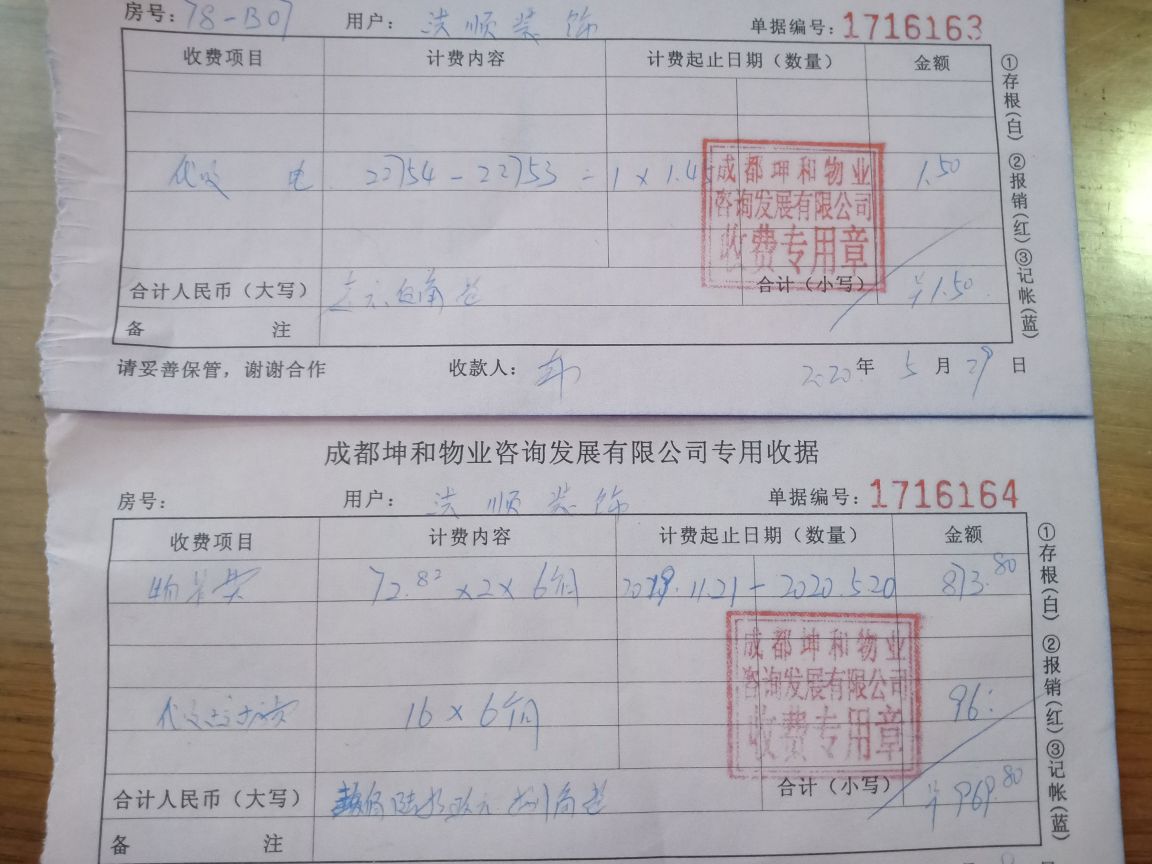 房号: 78-B07 用户: 洪顺装饰 单据编号: 1716163
收费项目 计费内容 计费起止日期(数量) 金额
代收 电 22754-22753=1×1.45 1.50
成都坤和物业
咨询发展有限公司
收费专用章
合计人民币(大写) 壹元伍角整 合计(小写) ¥1.50
备 注
请妥善保管,谢谢合作 收款人: 2020年 5月 29日
①存根(白) ②报销(红) ③记帐(蓝)
成都坤和物业咨询发展有限公司专用收据
房号: 用户: 洪顺装饰 单据编号: 1716164
收费项目 计费内容 计费起止日期(数量) 金额
物业费 72.82×2×6个月 2019.11.21-2020.5.20 873.80
16×6个月 96.
成都坤和物业
咨询发展有限公司
收费专用章
合计人民币(大写) 玖佰陆拾玖元捌角整 合计(小写) ¥969.80
备 注
①存根(白) ②报销(红) ③记帐(蓝)